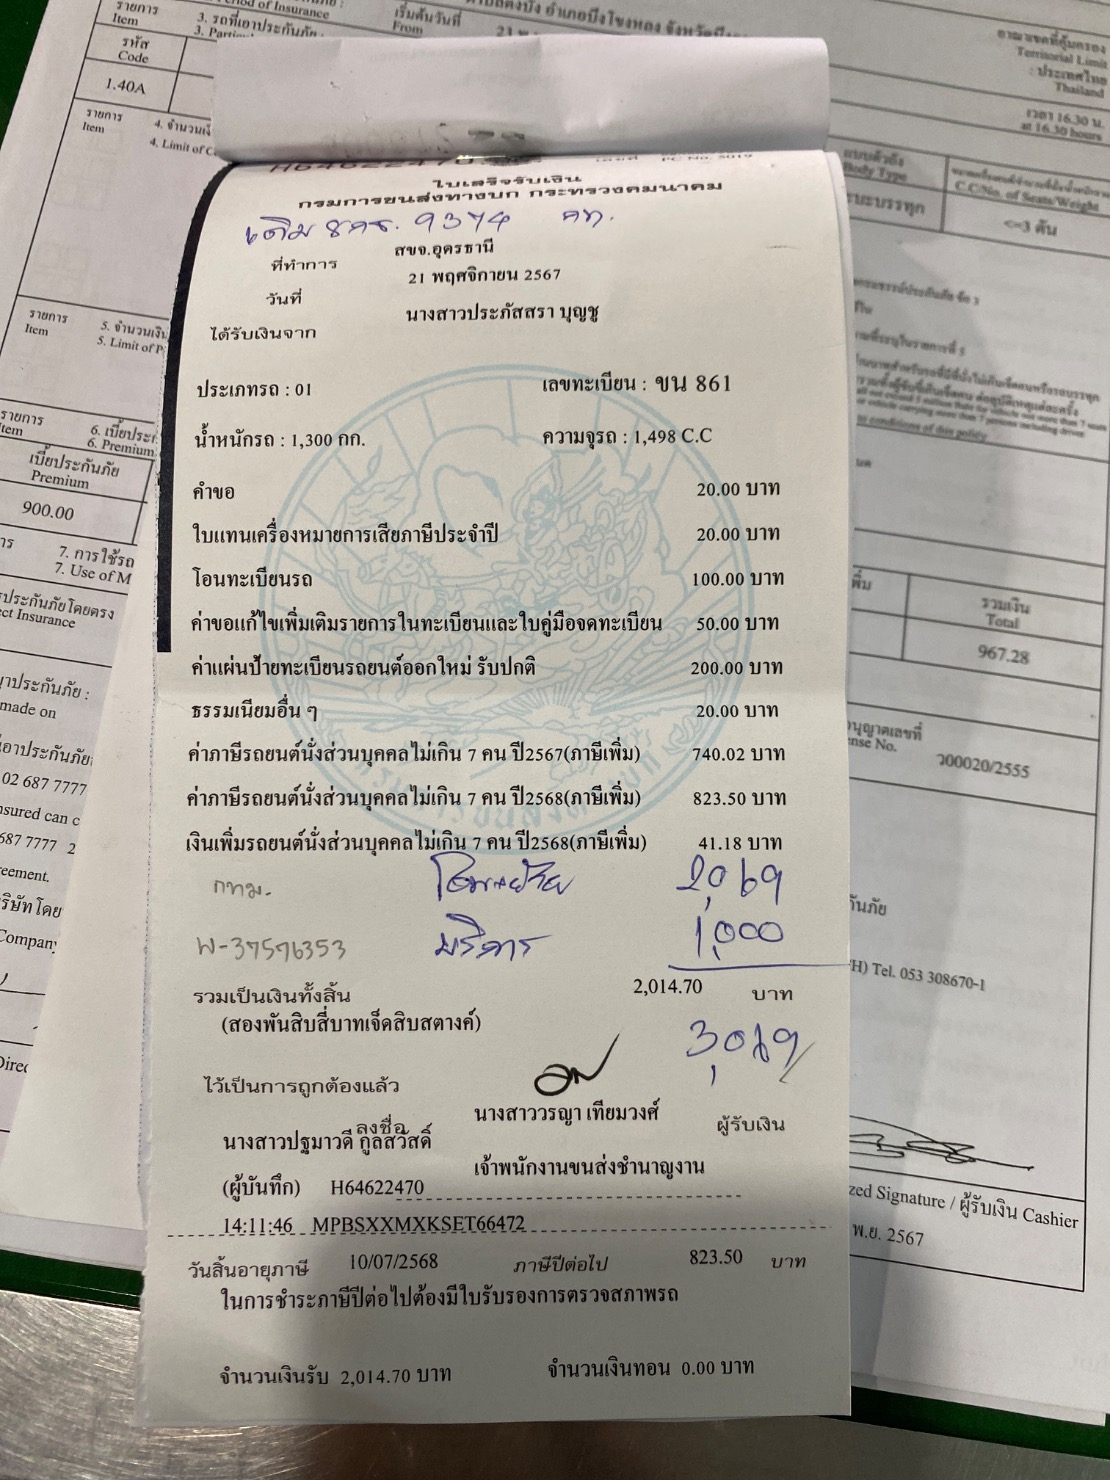 รายการ
Item
3. รถที่เอาประกันภัย :
เริ่มต้นวันที่
From
รหัส
Code
1.40A
รายการ
Item
4. จำนวนเงิ
4. Limit of C
อาณาเขตที่คุ้มครอง
Territorial Limit
: ประเทศไทย
Thailand
เวลา 16.30 น.
at 16.30 hours
แบบตัวถัง
Body Type
C.C/No. of Seats/Weight
ระบะบรรทุก
<=3 ตัน
ใบเสร็จรับเงิน
กรมการขนส่งทางบก กระทรวงคมนาคม
เดิม 8กธ. 9374 กท.
ที่ทำการ สขจ.อุดรธานี
วันที่ 21 พฤศจิกายน 2567
ได้รับเงินจาก นางสาวประภัสสรา บุญชู
ประเภทรถ : 01 เลขทะเบียน : ขน 861
น้ำหนักรถ : 1,300 กก. ความจุรถ : 1,498 C.C
คำขอ 20.00 บาท
ใบแทนเครื่องหมายการเสียภาษีประจำปี 20.00 บาท
โอนทะเบียนรถ 100.00 บาท
ค่าขอแก้ไขเพิ่มเติมรายการในทะเบียนและใบคู่มือจดทะเบียน 50.00 บาท
ค่าแผ่นป้ายทะเบียนรถยนต์ออกใหม่ รับปกติ 200.00 บาท
ธรรมเนียมอื่น ๆ 20.00 บาท
ค่าภาษีรถยนต์นั่งส่วนบุคคลไม่เกิน 7 คน ปี2567(ภาษีเพิ่ม) 740.02 บาท
ค่าภาษีรถยนต์นั่งส่วนบุคคลไม่เกิน 7 คน ปี2568(ภาษีเพิ่ม) 823.50 บาท
เงินเพิ่มรถยนต์นั่งส่วนบุคคลไม่เกิน 7 คน ปี2568(ภาษีเพิ่ม) 41.18 บาท
กทม. โอน+ย้าย 2,069
W-37576353 บริการ 1,000
รวมเป็นเงินทั้งสิ้น 2,014.70 บาท
(สองพันสิบสี่บาทเจ็ดสิบสตางค์)
3,069
ไว้เป็นการถูกต้องแล้ว
ลงชื่อ นางสาววรญา เทียมวงศ์ ผู้รับเงิน
นางสาวปฐมาวดี กูลสวัสดิ์
เจ้าพนักงานขนส่งชำนาญงาน
(ผู้บันทึก) H64622470
14:11:46 MPBSXXMXKSET66472
วันสิ้นอายุภาษี 10/07/2568 ภาษีปีต่อไป 823.50 บาท
ในการชำระภาษีปีต่อไปต้องมีใบรับรองการตรวจสภาพรถ
จำนวนเงินรับ 2,014.70 บาท จำนวนเงินทอน 0.00 บาท
รายการ
Item
5. จำนวนเงิน
5. Limit of P
รายการ
Item
6. เบี้ยประก
6. Premium
เบี้ยประกันภัย
Premium
900.00
7. การใช้รถ
7. Use of M
ประกันภัยโดยตรง
ct Insurance
made on
02 687 7777
sured can c
687 7777 2
reement.
ริษัทโดย
Company
Direc
รวมเงิน
Total
967.28
นุญาตเลขที่
nse No.
ว00020/2555
กันภัย
H) Tel. 053 308670-1
zed Signature / ผู้รับเงิน Cashier
พ.ย. 2567